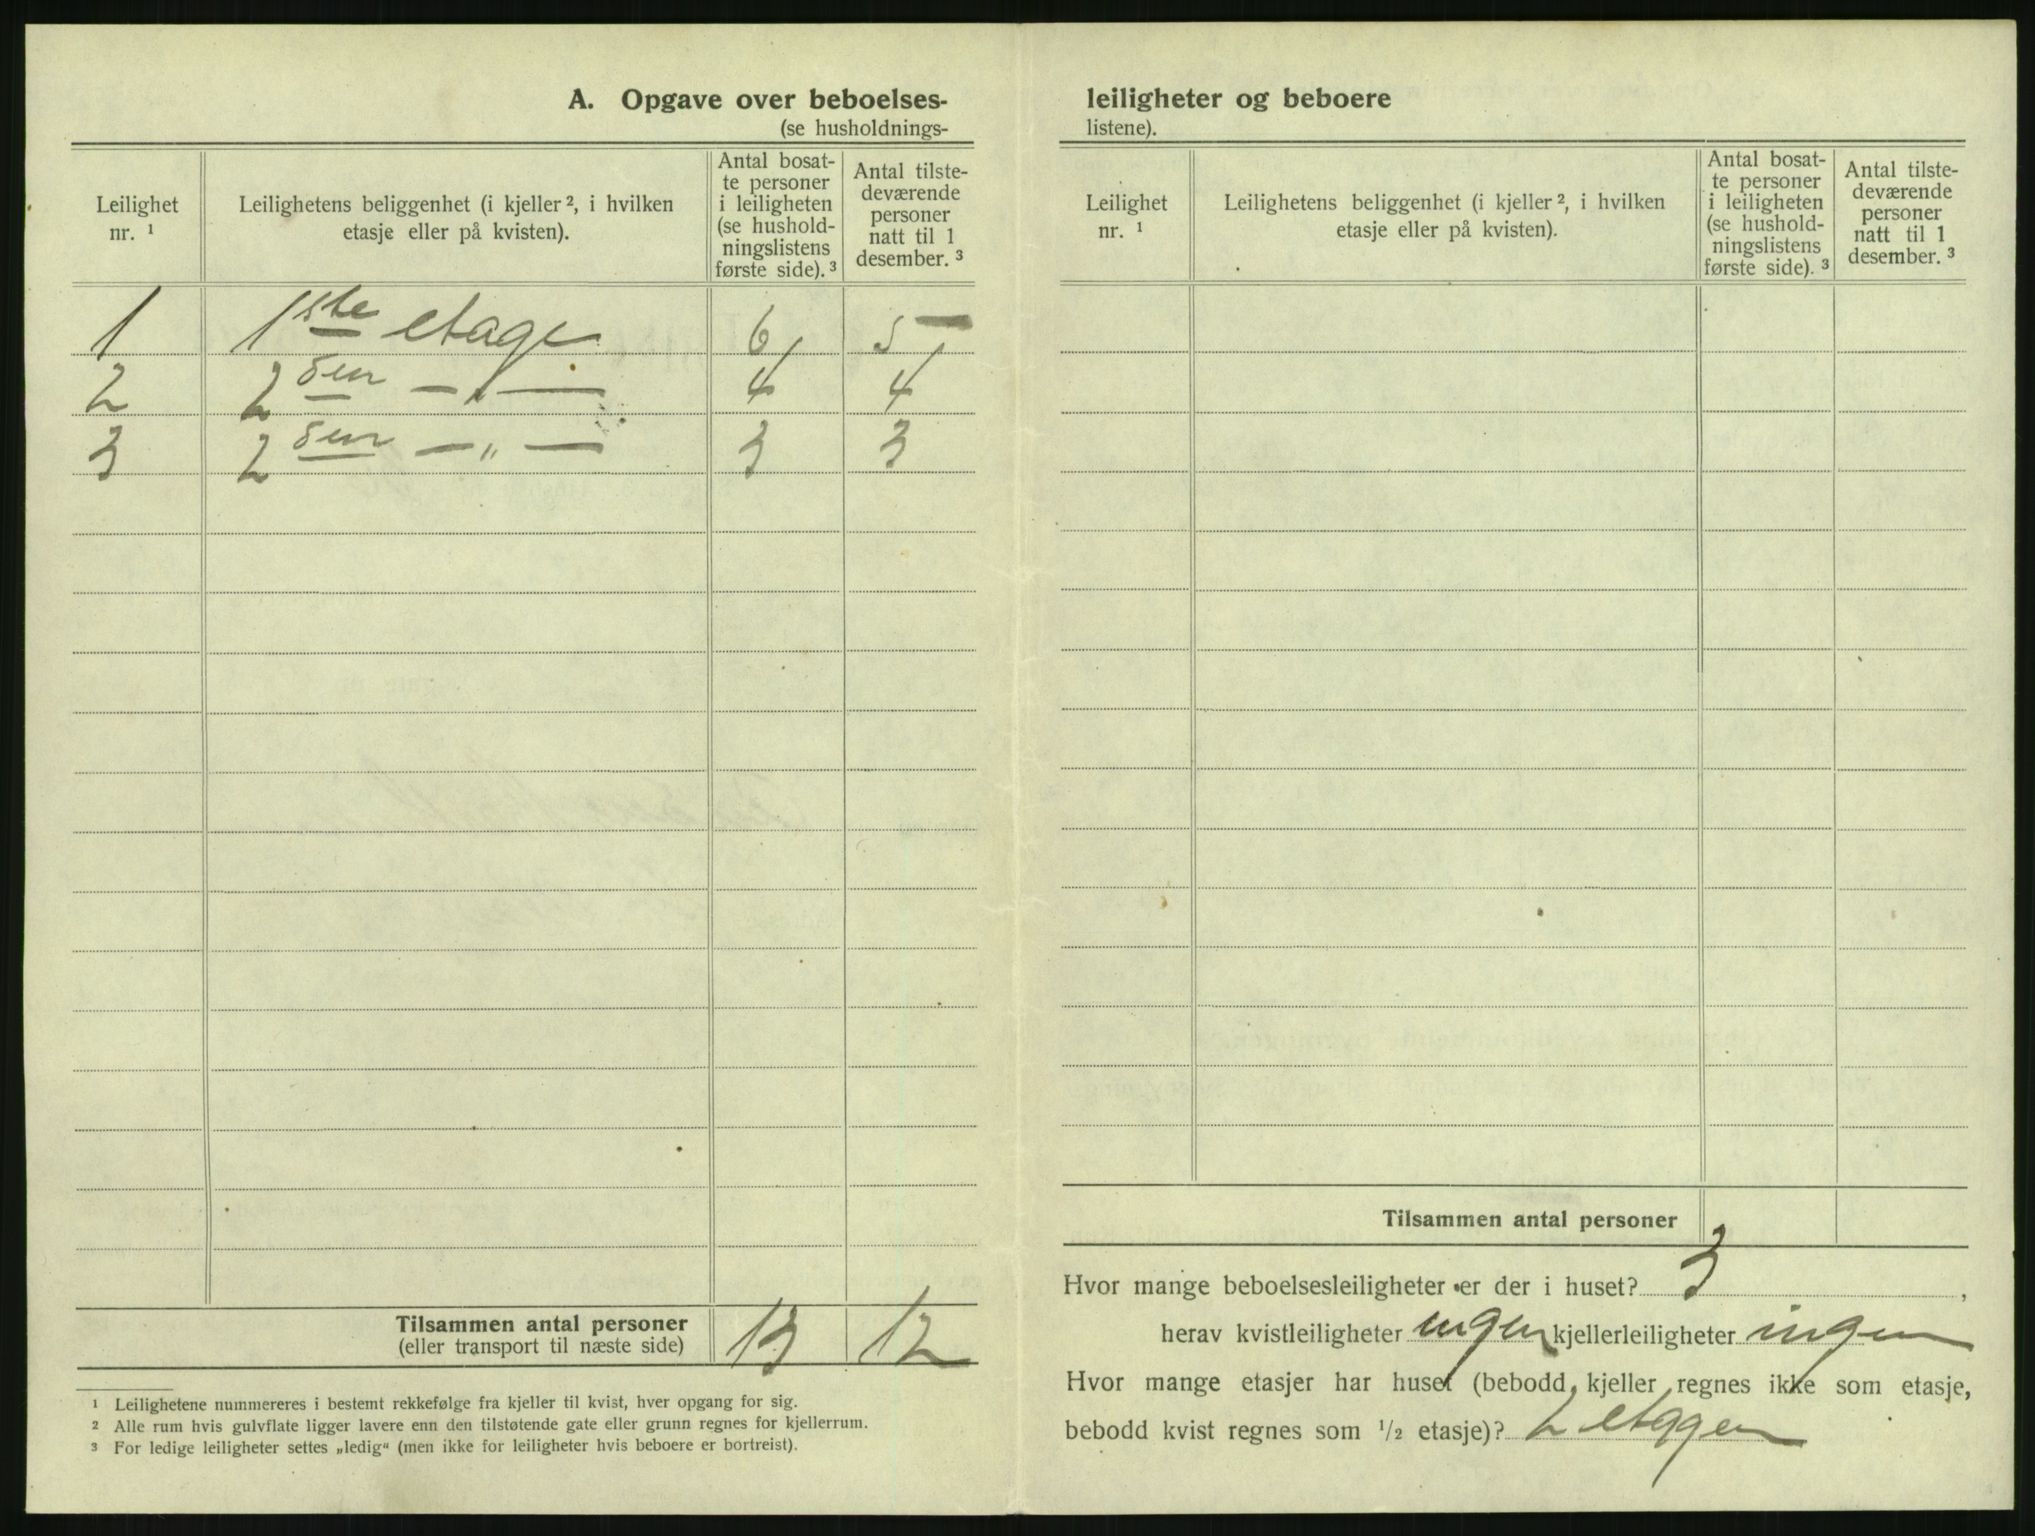 A. Opgave over beboelses-
(se husholdnings-
Leilighet
nr. ¹
Leilighetens beliggenhet (i kjeller ², i hvilken
etasje eller på kvisten).
Antal bosat-
te personer
i leiligheten
(se hushold-
ningslistens
første side). ³
Antal tilste-
deværende
personer
natt til 1
desember. ³
1 1ste etage 6 5
2 2den — " — 4 4
3 2den — " — 3 3
Tilsammen antal personer 13 12
(eller transport til næste side)
¹ Leilighetene nummereres i bestemt rekkefølge fra kjeller til kvist, hver opgang for sig.
² Alle rum hvis gulvflate ligger lavere enn den tilstøtende gate eller grunn regnes for kjellerrum.
³ For ledige leiligheter settes „ledig“ (men ikke for leiligheter hvis beboere er bortreist).
leiligheter og beboere
listene).
Leilighet
nr. ¹
Leilighetens beliggenhet (i kjeller ², i hvilken
etasje eller på kvisten).
Antal bosat-
te personer
i leiligheten
(se hushold-
ningslistens
første side). ³
Antal tilste-
deværende
personer
natt til 1
desember. ³
Tilsammen antal personer
Hvor mange beboelsesleiligheter er der i huset? 3 ,
herav kvistleiligheter ingen kjellerleiligheter ingen
Hvor mange etasjer har huset (bebodd kjeller regnes ikke som etasje,
bebodd kvist regnes som ½ etasje)? 2 etager